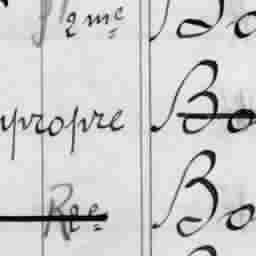 2me Bo
propre Bo
Ree Bo